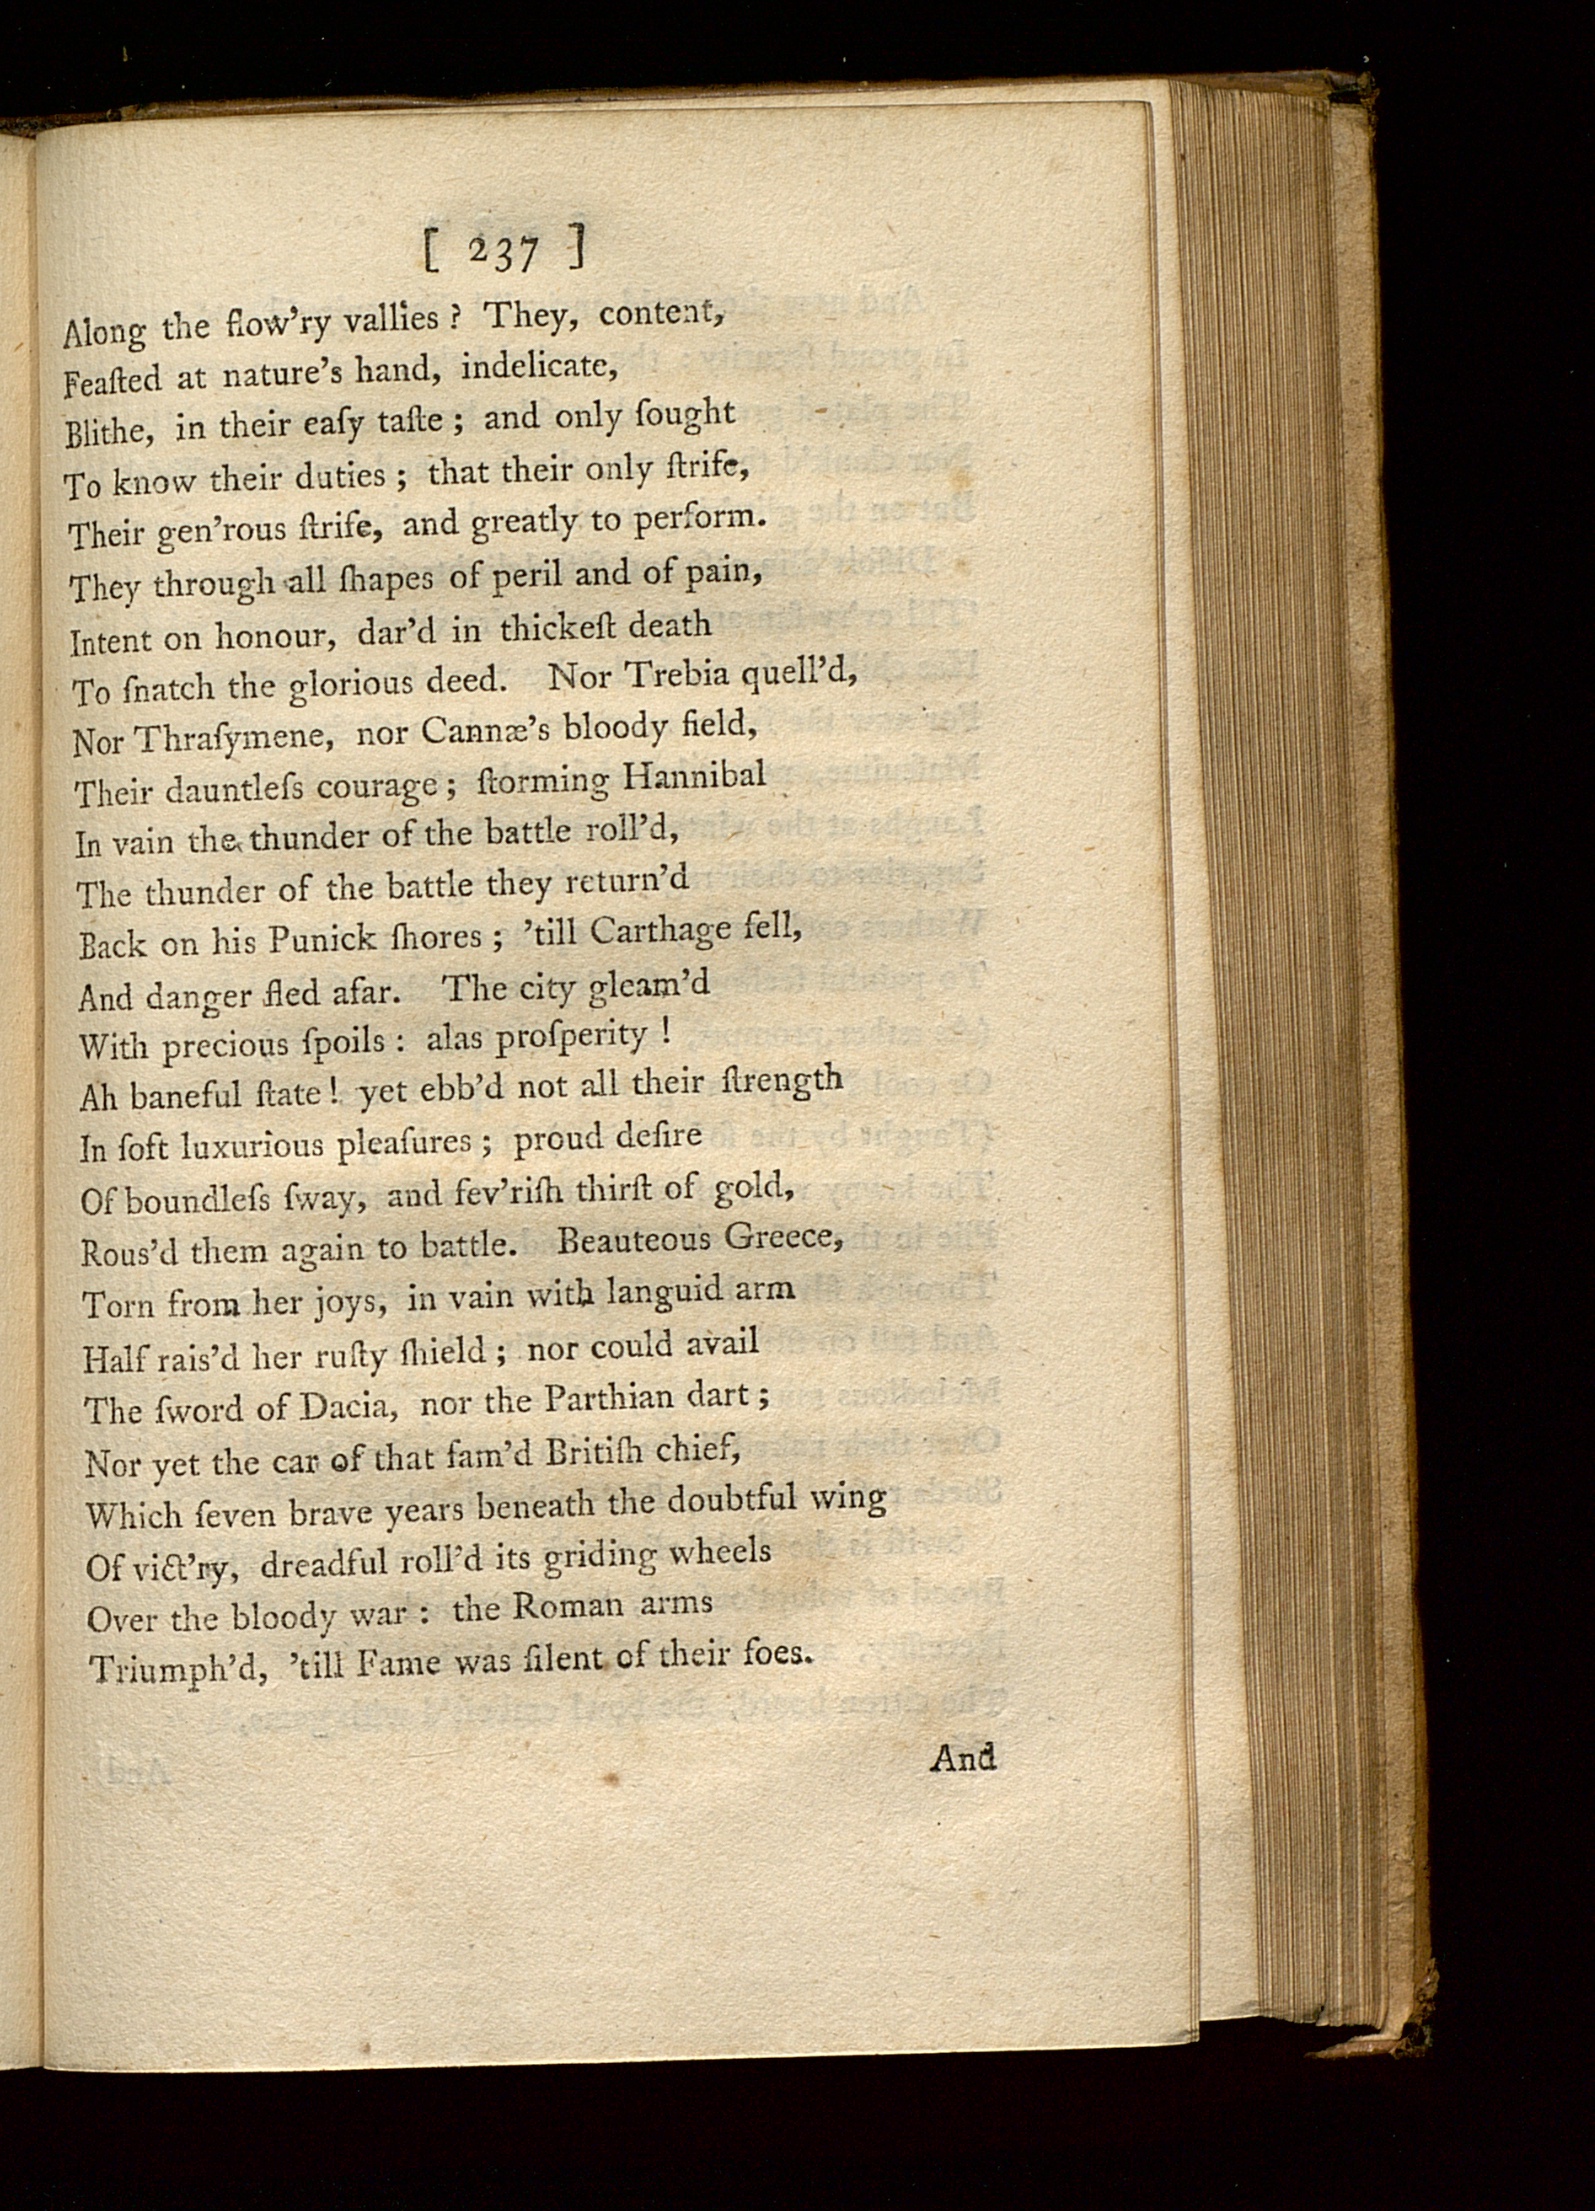 [ 237 ]
Along the flow'ry vallies ? They, content,
Feaſted at nature's hand, indelicate,
Blithe, in their eaſy taſte ; and only ſought
To know their duties ; that their only ſtrife,
Their gen'rous ſtrife, and greatly to perform.
They through all ſhapes of peril and of pain,
Intent on honour, dar'd in thickeſt death
To ſnatch the glorious deed. Nor Trebia quell'd,
Nor Thraſymene, nor Cannæ's bloody field,
Their dauntleſs courage ; ſtorming Hannibal
In vain the thunder of the battle roll'd,
The thunder of the battle they return'd
Back on his Punick ſhores ; 'till Carthage fell,
And danger fled afar. The city gleam'd
With precious ſpoils : alas proſperity !
Ah baneful ſtate ! yet ebb'd not all their ſtrength
In ſoft luxurious pleaſures ; proud deſire
Of boundleſs ſway, and fev'riſh thirſt of gold,
Rous'd them again to battle. Beauteous Greece,
Torn from her joys, in vain with languid arm
Half rais'd her ruſty ſhield ; nor could avail
The ſword of Dacia, nor the Parthian dart ;
Nor yet the car of that fam'd Britiſh chief,
Which ſeven brave years beneath the doubtful wing
Of vict'ry, dreadful roll'd its griding wheels
Over the bloody war : the Roman arms
Triumph'd, 'till Fame was ſilent of their foes.
And